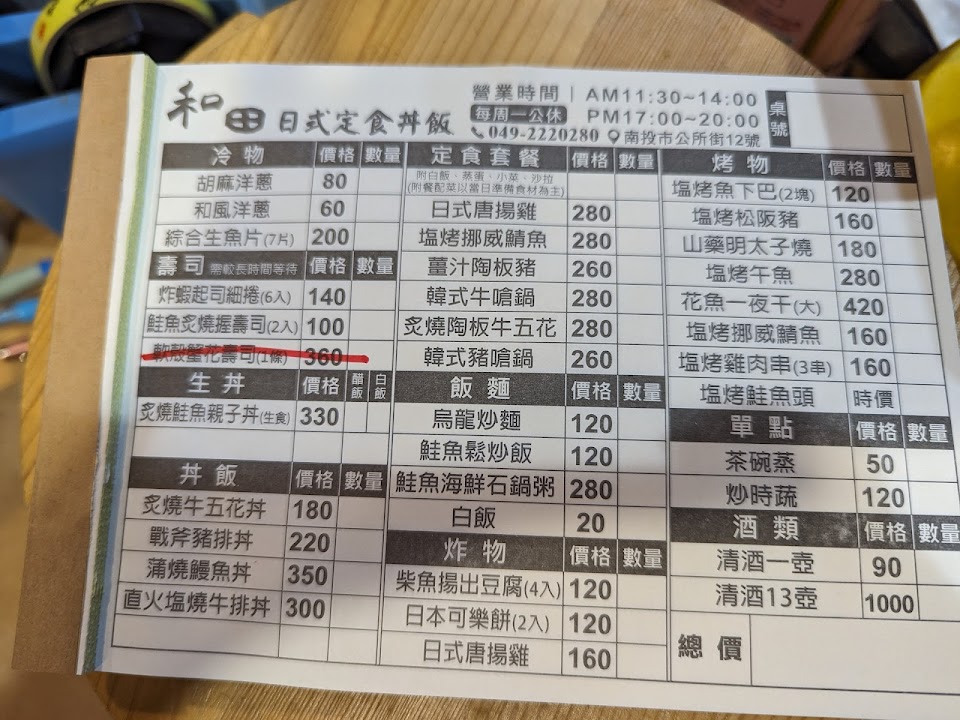 和田 日式定食丼飯
營業時間 | AM11:30~14:00
每周一公休 PM17:00~20:00
049-2220280 南投市公所街12號
桌號
冷物 價格 數量
胡麻洋蔥 80
和風洋蔥 60
綜合生魚片(7片) 200
壽司 需較長時間等待 價格 數量
炸蝦起司細捲(6入) 140
鮭魚炙燒握壽司(2入) 100
軟殼蟹花壽司(1條) 360
生丼 價格 醋飯 白飯
炙燒鮭魚親子丼(生食) 330
丼飯 價格 數量
炙燒牛五花丼 180
戰斧豬排丼 220
蒲燒鰻魚丼 350
直火塩燒牛排丼 300
定食套餐 價格 數量
附白飯、蒸蛋、小菜、沙拉
(附餐配菜以當日準備食材為主)
日式唐揚雞 280
塩烤挪威鯖魚 280
薑汁陶板豬 260
韓式牛嗆鍋 280
炙燒陶板牛五花 280
韓式豬嗆鍋 260
飯麵 價格 數量
烏龍炒麵 120
鮭魚鬆炒飯 120
鮭魚海鮮石鍋粥 280
白飯 20
炸物 價格 數量
柴魚揚出豆腐(4入) 120
日本可樂餅(2入) 120
日式唐揚雞 160
烤物 價格 數量
塩烤魚下巴(2塊) 120
塩烤松阪豬 160
山藥明太子燒 180
塩烤午魚 280
花魚一夜干(大) 420
塩烤挪威鯖魚 160
塩烤雞肉串(3串) 160
塩烤鮭魚頭 時價
單點 價格 數量
茶碗蒸 50
炒時蔬 120
酒類 價格 數量
清酒一壺 90
清酒13壺 1000
總價